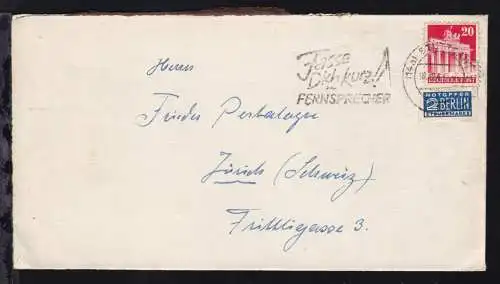 20
DEUTSCHE POST
NOTOPFER
2 BERLIN
STEUERMARKE
Fasse
Dich kurz!
FERNSPRECHER
Herrn
Frieder Pestalozzi
Zürich (Schweiz)
3.